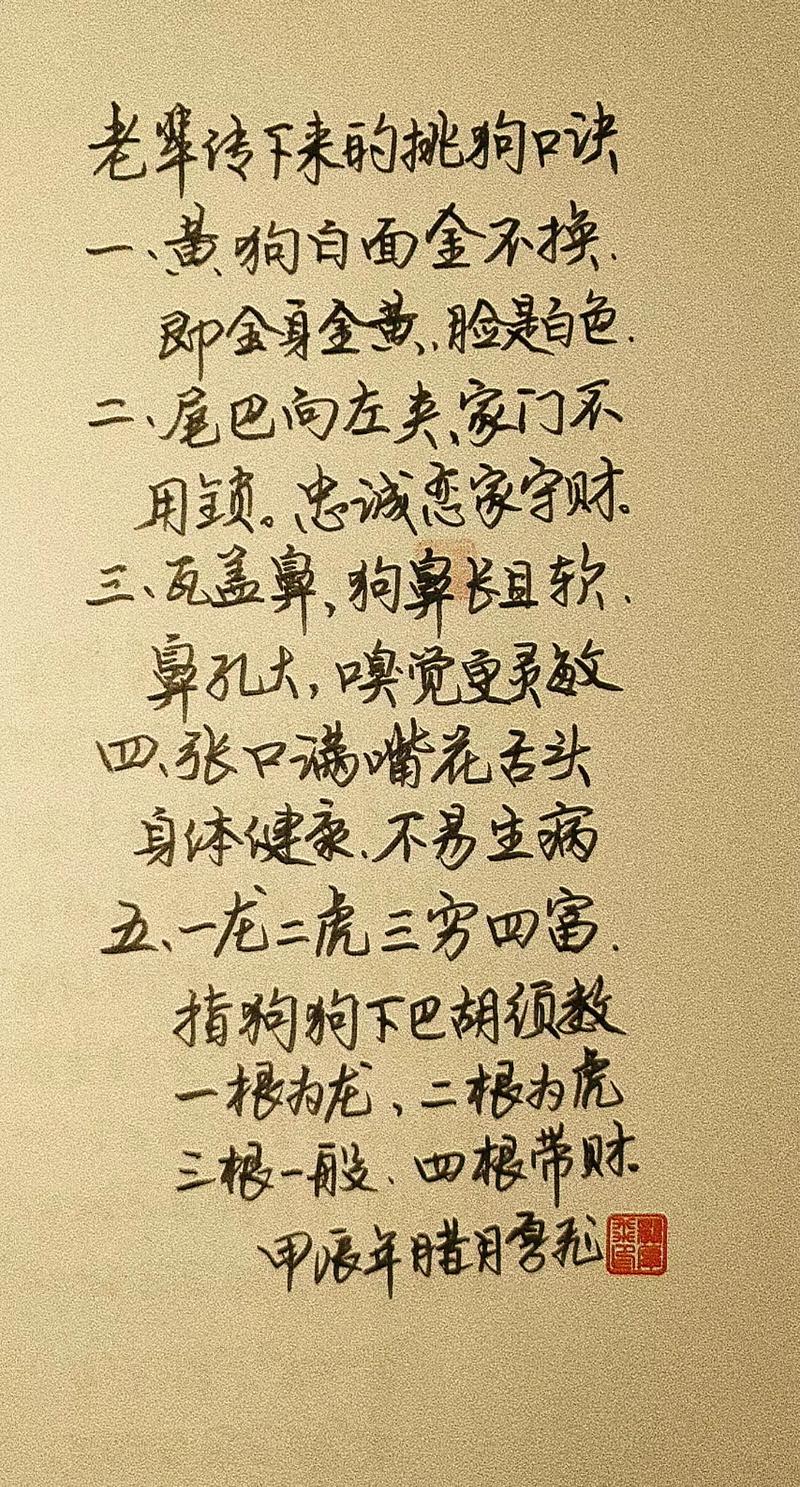 老辈传下来的挑狗口诀
一、黄狗白面金不换.
即全身金黄,脸是白色.
二、尾巴向左夹、家门不
用锁。忠诚恋家守财。
三、瓦盖鼻,狗鼻长且软.
鼻孔大,嗅觉更灵敏
四、张口满嘴花舌头
身体健康.不易生病
五、一龙二虎三穷四富.
指狗狗下巴胡须数
一根为龙、二根为虎
三根一般、四根带财.
甲辰年腊月